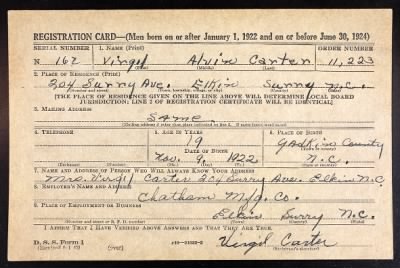 REGISTRATION CARD—(Men born on or after January 1, 1922 and on or before June 30, 1924)
SERIAL NUMBER 1. NAME (Print) ORDER NUMBER
N 162 Virgil Alvin Carter 11,223
(First) (Middle) (Last)
2. PLACE OF RESIDENCE (Print)
204 Surry Ave. Elkin Surry N.C.
(Number and street) (Town, township, village, or city) (County) (State)
[THE PLACE OF RESIDENCE GIVEN ON THE LINE ABOVE WILL DETERMINE LOCAL BOARD
JURISDICTION; LINE 2 OF REGISTRATION CERTIFICATE WILL BE IDENTICAL]
3. MAILING ADDRESS
Same.
[Mailing address if other than place indicated on line 2. If same insert word same]
4. TELEPHONE 5. AGE IN YEARS 6. PLACE OF BIRTH
19 Yadkin County
DATE OF BIRTH (Town or county)
Nov. 9, 1922 N.C.
(Exchange) (Number) (Mo.) (Day) (Yr.) (State or country)
7. NAME AND ADDRESS OF PERSON WHO WILL ALWAYS KNOW YOUR ADDRESS
Mrs. Virgil Carter 204 Surry Ave. Elkin N.C.
8. EMPLOYER'S NAME AND ADDRESS
Chatham Mfg. Co.
9. PLACE OF EMPLOYMENT OR BUSINESS
Elkin Surry N.C.
(Number and street or R. F. D. number) (Town) (County) (State)
I AFFIRM THAT I HAVE VERIFIED ABOVE ANSWERS AND THAT THEY ARE TRUE.
D. S. S. Form 1
Virgil Carter